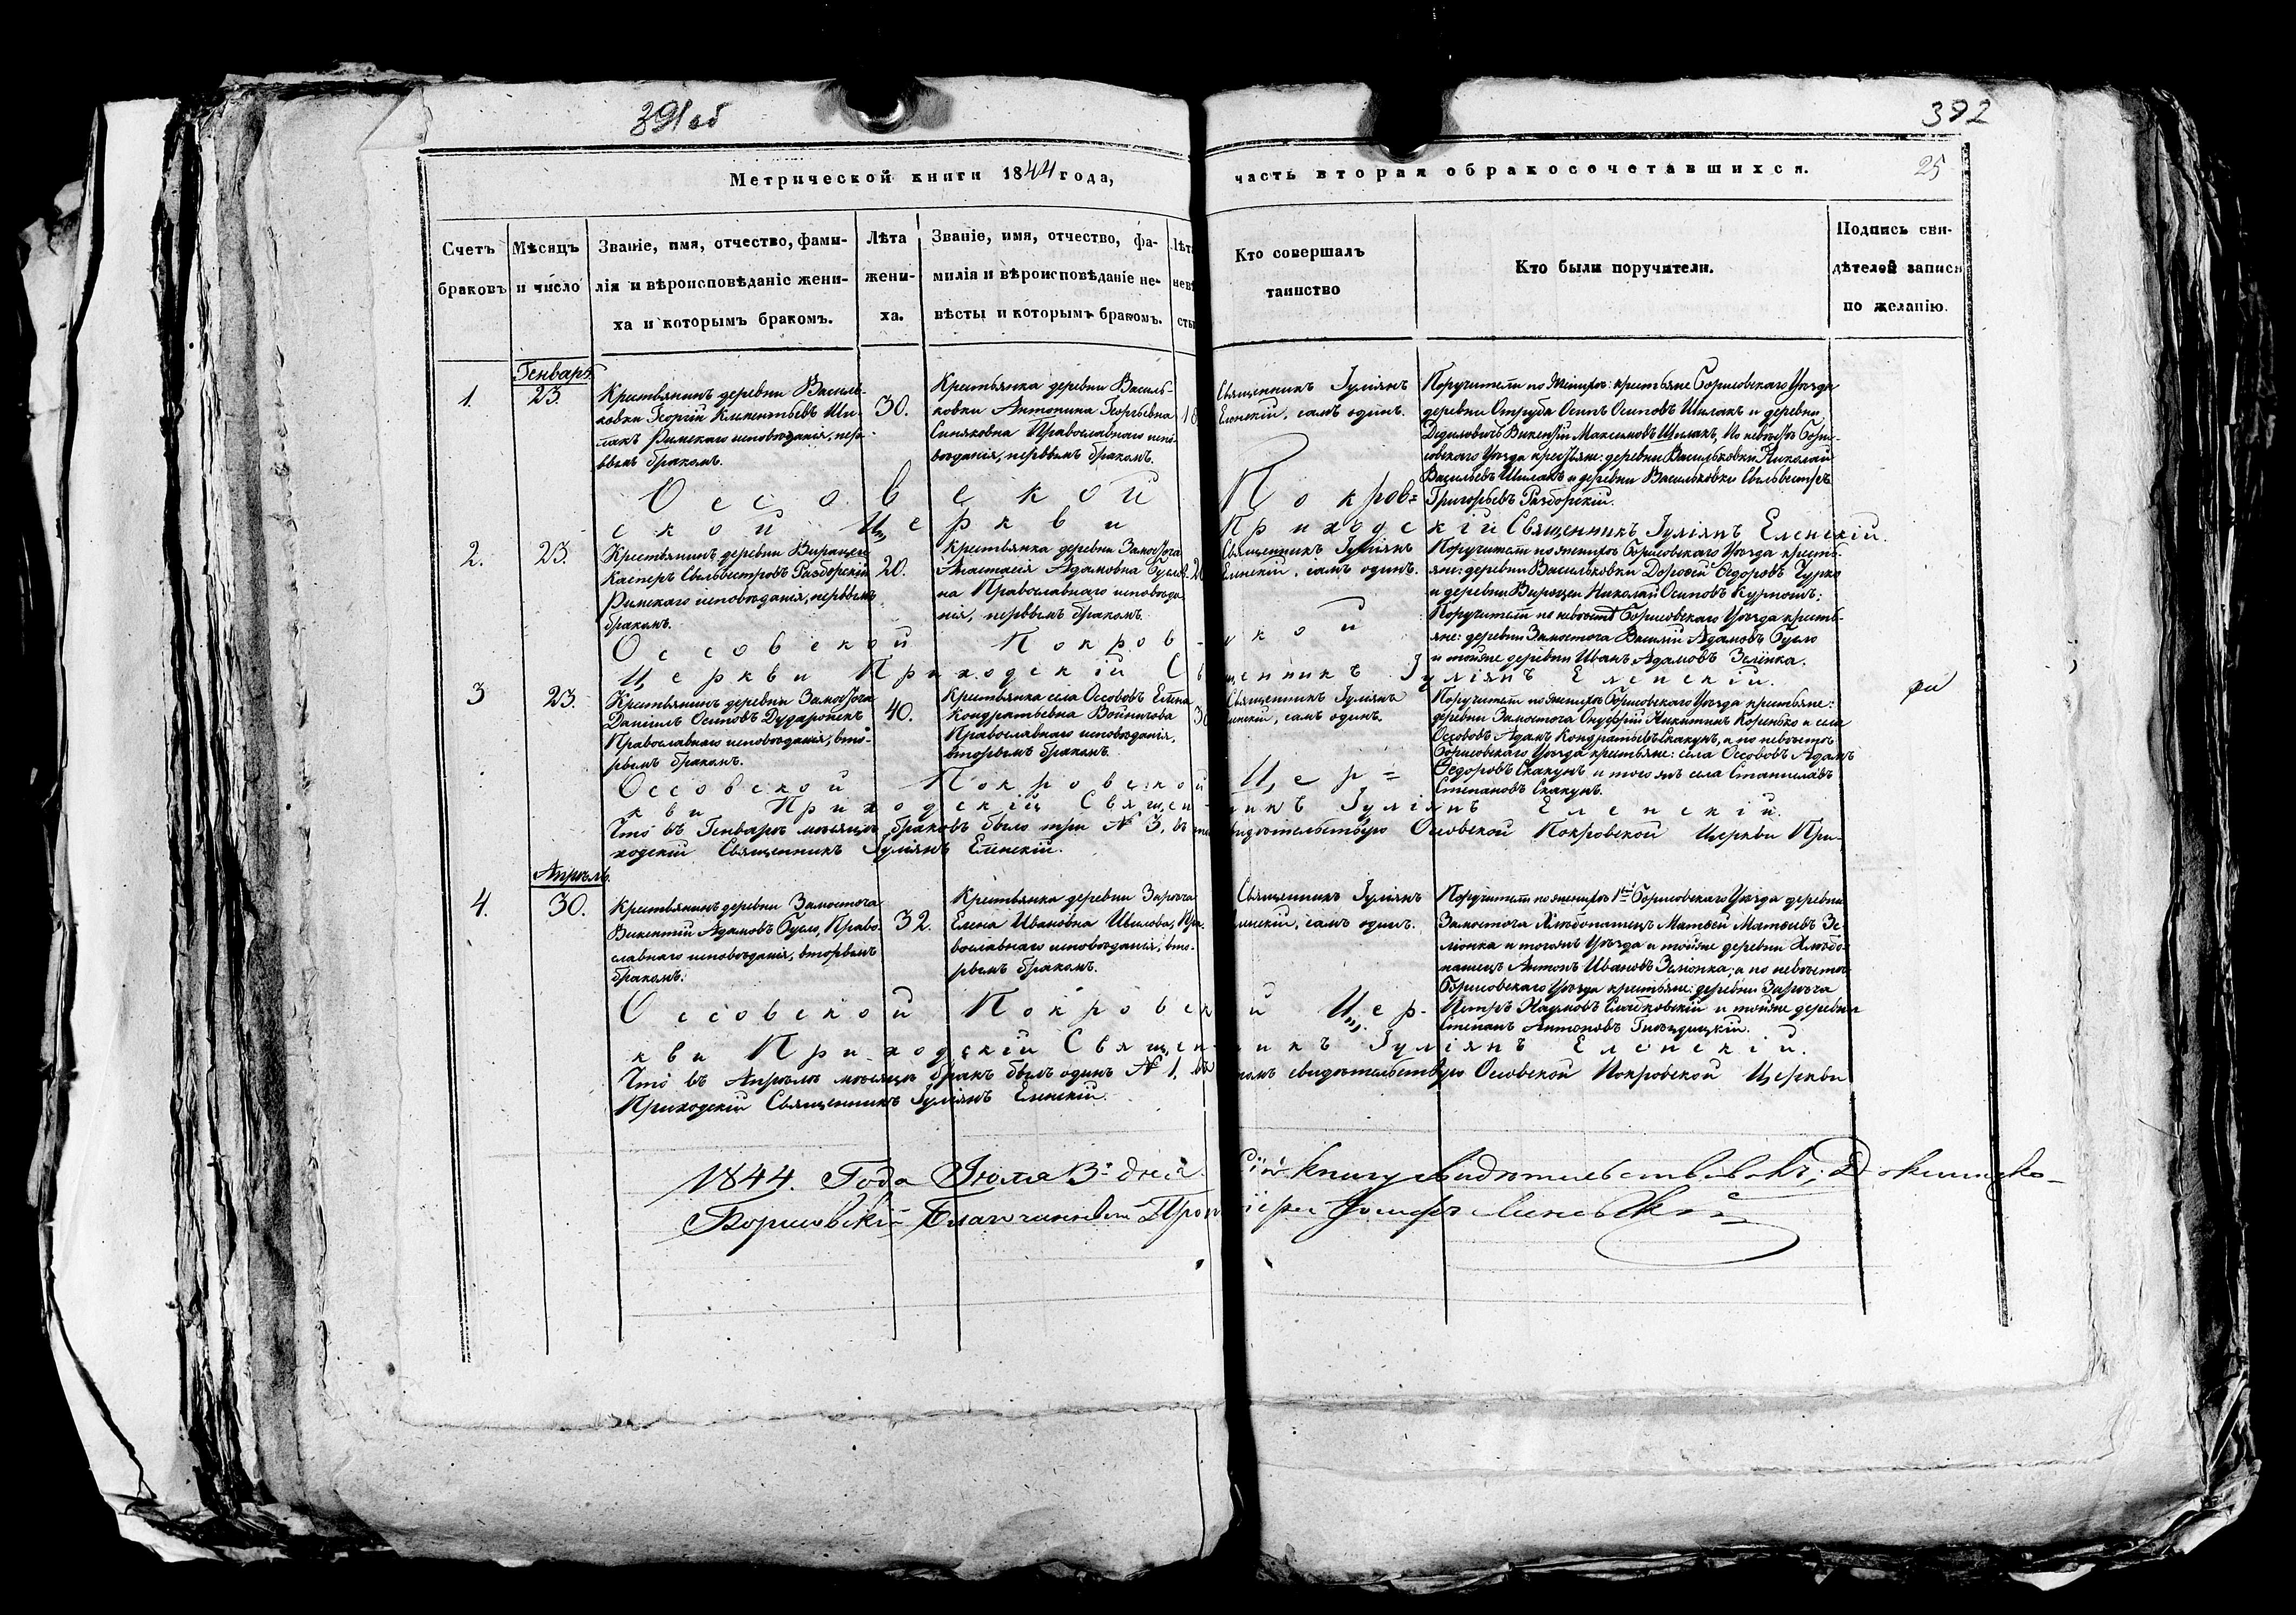 391 об
392
Метрической книги 1844 года,
часть вторая о бракосочетавшихся.
25
Счетъ
браковъ
Мѣсяцъ
и число
Званіе, имя, отчество, фами-
лія и вѣроисповѣданіе жени-
ха и которымъ бракомъ.
Лѣта
жени-
ха.
Званіе, имя, отчество, фа-
милія и вѣроисповѣданіе не-
вѣсты и которымъ бракомъ.
Лѣта
невѣ
сты
Кто совершалъ
таинство
Кто были поручители.
Подпись сви-
дѣтелей записи
по желанію.
Генварь
1.
23.
Крестьянинъ деревни Василь-
ковки Георгій Климентьевъ Ши-
лакъ Римскаго исповѣданія, пер-
вымъ бракомъ.
30.
Крестьянка деревни Василь-
ковки Антонина Георгьевна
Синяковна Православнаго испо-
вѣданія, первымъ бракомъ.
18
Священникъ Іуліянъ
Еленскій, самъ одинъ.
Поручители по женихѣ: крестьяне Борисовскаго Уѣзда
деревни Отруба Осипъ Осиповъ Шилакъ и деревни
Дедиловичь Викентій Максимовъ Шилакъ, По невѣстѣ Бори-
совскаго Уѣзда крестьяне: деревни Васильковки Николай
Васильевъ Шилакъ и деревни Васильковки Сильвестръ
Григорьевъ Разборскій.
Оссовской Покров=
ской Церкви Приходскій Священникъ Іуліянъ Еленскій.
2.
23.
Крестьянинъ деревни
Касперъ Сильвестровъ Разборскій
Римскаго исповѣданія, первымъ
бракомъ.
20.
Крестьянка деревни Замосточа
Анастасія Адамовна Бусло-
на Православнаго исповѣда
нія, первымъ бракомъ.
20
Священникъ Іуліянъ
Еленскій, самъ одинъ.
Поручители по женихѣ Борисовскаго Уѣзда кресть-
яне: деревни Васильковки Дорофей Ѳедоровъ Чурко
и деревни Николай Осиповъ
Поручители по невѣстѣ Борисовскаго Уѣзда кресть-
яне: деревни Замосточа Василій Адамовъ Бусло
и тойже деревни Иванъ Адамовъ Зелёнка.
Оссовской Покров-
ской
Церкви Приходскій Священникъ Іуліянъ Еленскій.
3
23.
Крестьянинъ деревни Замосточа
Даніилъ Осиповъ Дударонекъ
Православнаго исповѣданія, вто-
рымъ бракомъ.
40.
Крестьянка села Оссововъ Елена
Кондратьевна Войничова
Православнаго исповѣданія,
вторымъ бракомъ.
30
Священникъ Іуліянъ
Еленскій, самъ одинъ.
Поручители по женихѣ Борисовскаго Уѣзда крестьяне:
деревни Замосточа Онуфрій Никитинъ Коренько и села
Оссововъ Адамъ Кондратьевъ Скакунъ, а по невѣстѣ
Борисовскаго Уѣзда крестьяне: села Оссововъ Адамъ
Ѳедоровъ Скакунъ и того жъ села Станиславъ
Степановъ Скакунъ.
Оссовской Покровской Цер=
кви Приходскій Священникъ Іуліянъ Еленскій.
Что въ Генварѣ мѣсяцѣ браковъ было три № 3, въ томъ свидѣтельствую Оссовской Покровской Церкви При-
ходскій Священникъ Іуліянъ Еленскій.
Апрѣль.
4.
30.
Крестьянинъ деревни Замосточа
Викентій Адамовъ Бусло, Право-
славнаго исповѣданія, вторымъ
бракомъ.
32.
Крестьянка деревни Зарѣчча
Елена Ивановна Пра-
вославнаго исповѣданія, вто-
рымъ бракомъ.
Священникъ Іуліянъ
Еленскій, самъ одинъ.
Поручители по женихѣ 1й Борисовскаго Уѣзда деревни
Замосточа Хлѣбопашецъ Матвей Матвѣевъ Зе-
ліонка и тогожъ Уѣзда и тойже деревни Хлѣбо-
пашецъ Антонъ Ивановъ Зеліонка; а по невѣстѣ
Борисовскаго Уѣзда крестьяне: деревни Зарѣчча
Петръ Наумовъ и тойже деревни
Степанъ Антоновъ Гнѣздицкій.
Оссовской Покровской Цер-
кви Приходскій Священникъ Іуліянъ Еленскій.
Что въ Апрѣлѣ мѣсяцѣ бракъ былъ одинъ № 1, въ томъ свидѣтельствую Оссовской Покровской Церкви
Приходскій Священникъ Іуліянъ Еленскій.
1844. Года Іюля 3: дня Сію книгу свидѣтельствовалъ; Докшицко-
Борисовскій Благочинный Протоіерей Іосифъ